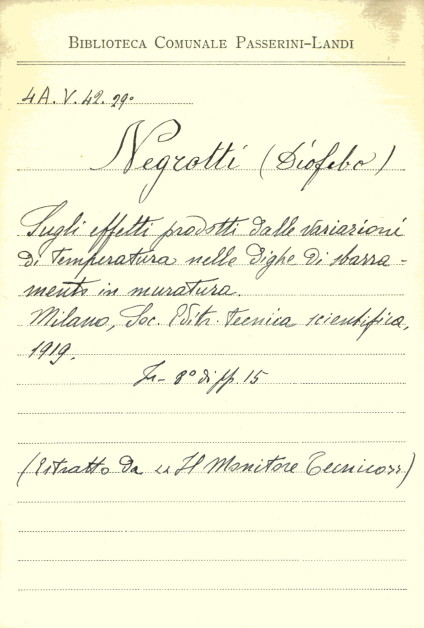 BIBLIOTECA COMUNALE PASSERINI-LANDI
4A. V. 42. 29º
Negrotti (Diofebo)
Sugli effetti prodotti dalle variazioni
di temperatura nelle dighe di sbarra-
mento in muratura.
Milano, Soc. Editr. tecnica scientifica,
1919.
In- 8º di pp. 15
(Estratto da "Il Monitore Tecnico")